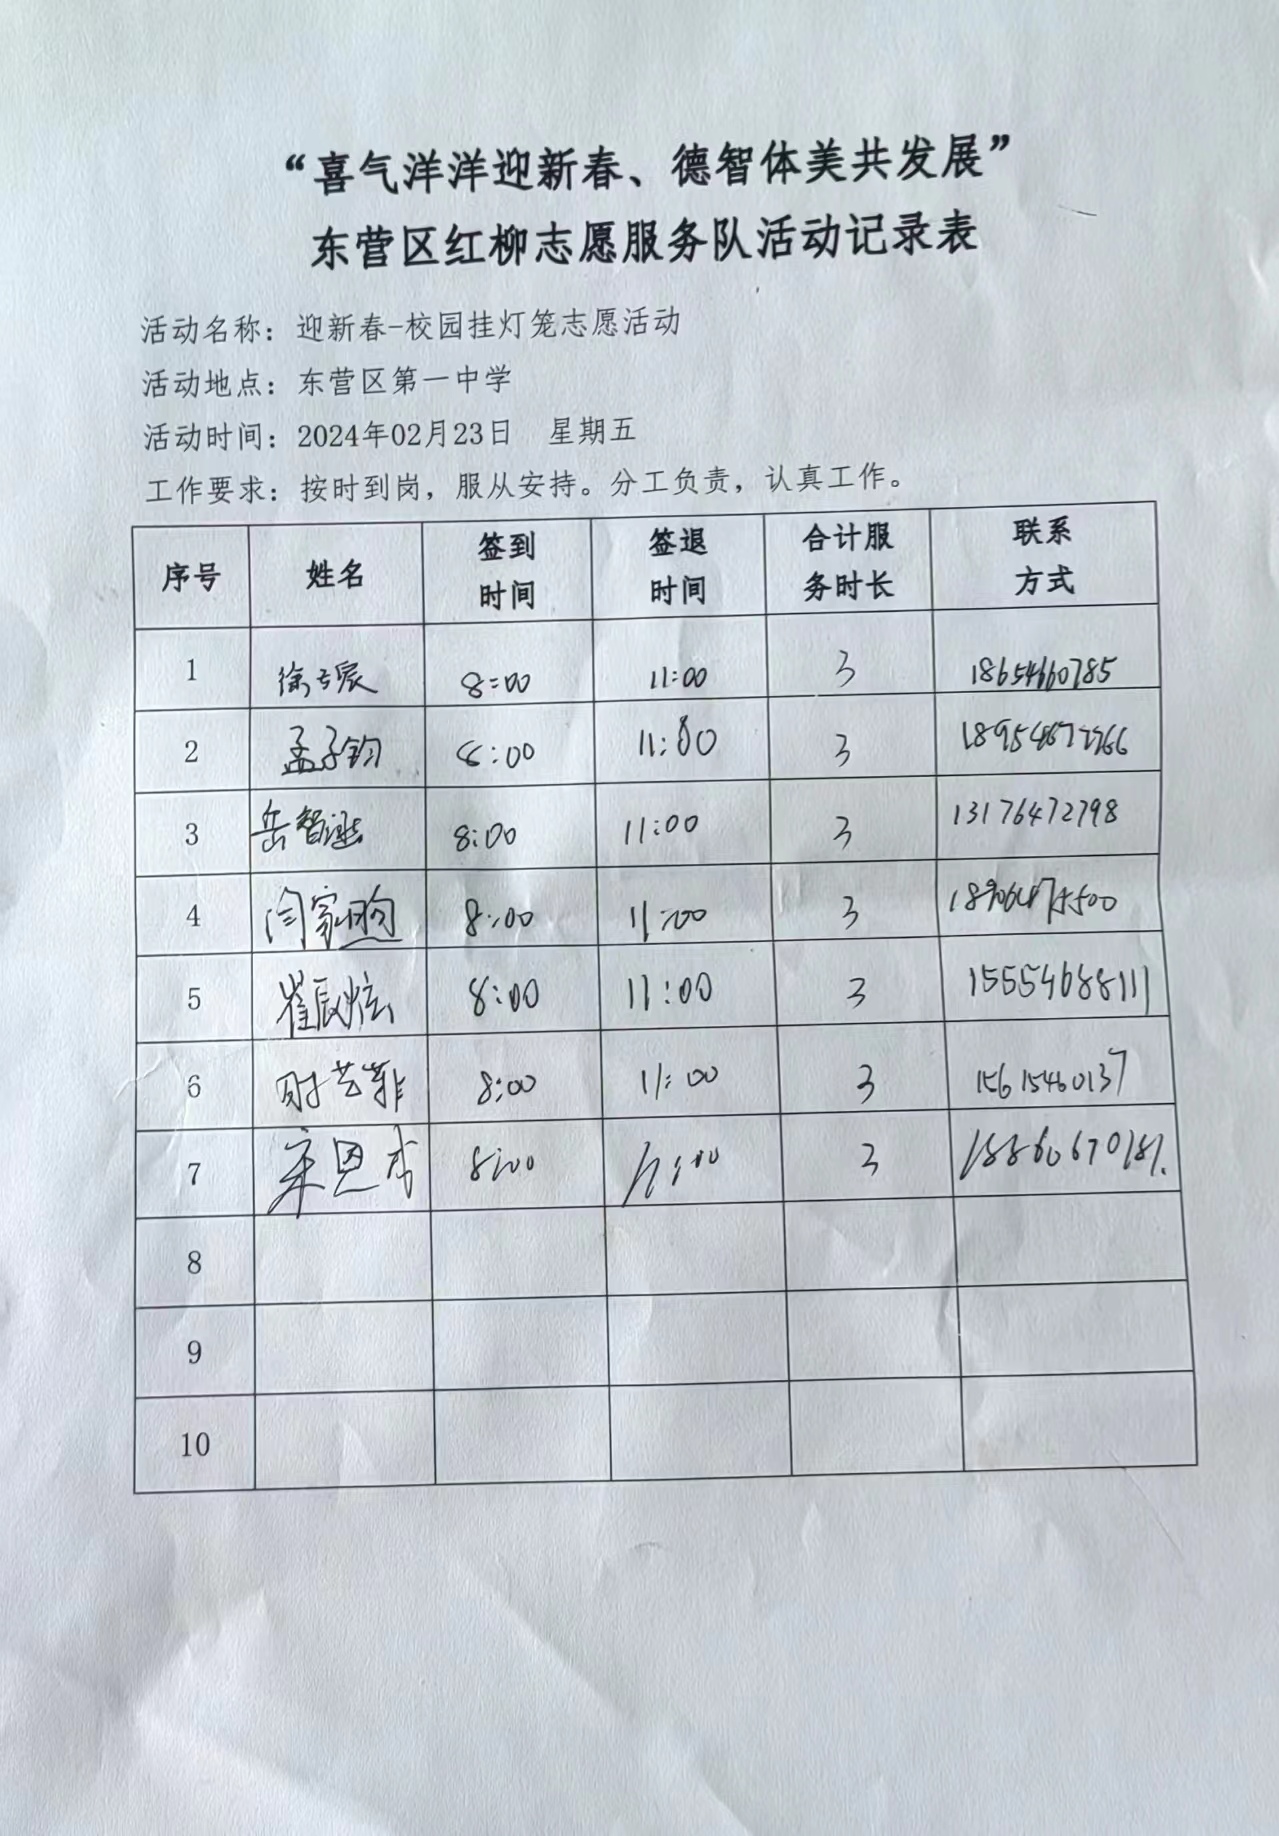 “喜气洋洋迎新春、德智体美共发展”
东营区红柳志愿服务队活动记录表
活动名称：迎新春-校园挂灯笼志愿活动
活动地点：东营区第一中学
活动时间：2024年02月23日 星期五
工作要求：按时到岗，服从安持。分工负责，认真工作。
序号 姓名 签到时间 签退时间 合计服务时长 联系方式
1 8:00 11:00 3 18654660785
2 孟子钧 8:00 11:00 3
3 岳智 8:00 11:00 3 13176472798
4 闫家煦 8:00 11:00 3
5 崔辰炫 8:00 11:00 3 15554688111
6 8:00 11:00 3 15615460137
7 宋恩 8:00 11:00 3
8
9
10